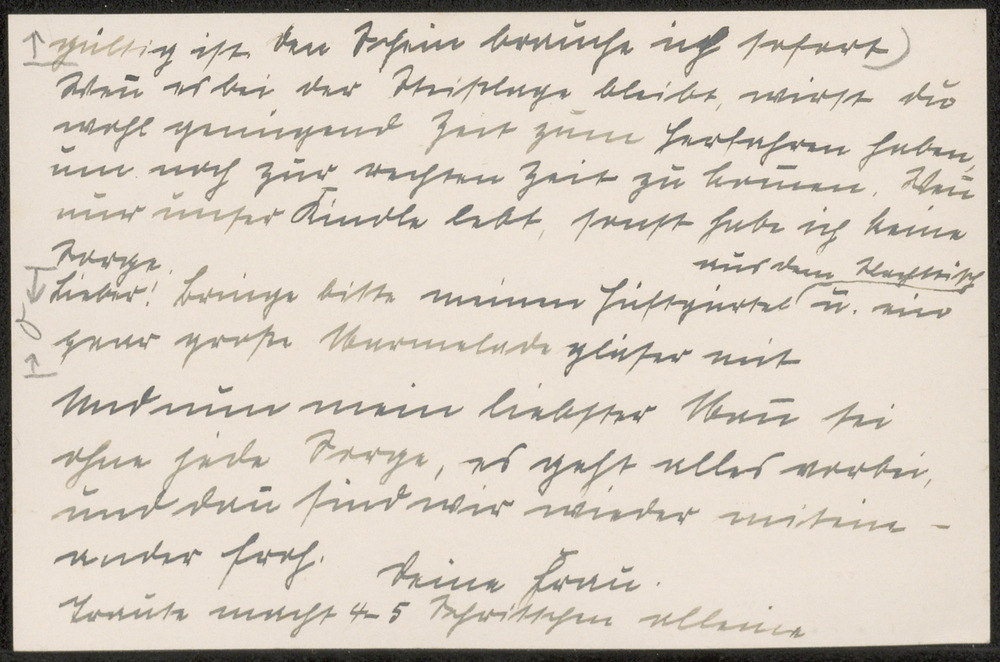 gültig ist. Den Schein brauche ich sofort)
Weñ es bei der Steißlage bleibt, wirst du
wohl genügend Zeit zum Herfahren haben,
um noch zur rechten Zeit zu kom̄en. Weñ
nur unser Kindle lebt, sonst habe ich keine
Sorge.
aus dem Nachttisch
Lieber! Bringe bitte meinen Hüftgürtel u. ein
paar große Marmeladegläser mit
Und nun mein liebster Mañ sei
ohne jede Sorge, es geht alles vorbei,
und dañ sind wir wieder mitein-
ander froh.
Deine Frau.
Traute macht 4-5 Schrittchen alleine